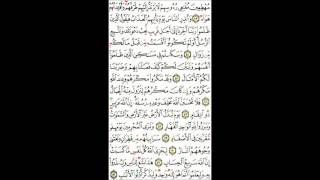 مُهْطِعِينَ مُقْنِعِي رُءُوسِهِمْ لَا يَرْتَدُّ إِلَيْهِمْ طَرْفُهُمْ وَأَفْـِٔدَتُهُمْ
هَوَآءٌ ٤٣ وَأَنذِرِ ٱلنَّاسَ يَوْمَ يَأْتِيهِمُ ٱلْعَذَابُ فَيَقُولُ ٱلَّذِينَ
ظَلَمُوا۟ رَبَّنَآ أَخِّرْنَآ إِلَىٰٓ أَجَلٍ قَرِيبٍ نُّجِبْ دَعْوَتَكَ وَنَتَّبِعِ
ٱلرُّسُلَ أَوَلَمْ تَكُونُوٓا۟ أَقْسَمْتُم مِّن قَبْلُ مَا لَكُم
مِّن زَوَالٍ ٤٤ وَسَكَنتُمْ فِي مَسَٰكِنِ ٱلَّذِينَ ظَلَمُوٓا۟
أَنفُسَهُمْ وَتَبَيَّنَ لَكُمْ كَيْفَ فَعَلْنَا بِهِمْ وَضَرَبْنَا
لَكُمُ ٱلْأَمْثَالَ ٤٥ وَقَدْ مَكَرُوا۟ مَكْرَهُمْ وَعِندَ ٱللَّهِ
مَكْرُهُمْ وَإِن كَانَ مَكْرُهُمْ لِتَزُولَ مِنْهُ ٱلْجِبَالُ
٤٦ فَلَا تَحْسَبَنَّ ٱللَّهَ مُخْلِفَ وَعْدِهِۦ رُسُلَهُۥٓ إِنَّ ٱللَّهَ عَزِيزٌ
ذُو ٱنتِقَامٍ ٤٧ يَوْمَ تُبَدَّلُ ٱلْأَرْضُ غَيْرَ ٱلْأَرْضِ وَٱلسَّمَٰوَٰتُ
وَبَرَزُوا۟ لِلَّهِ ٱلْوَٰحِدِ ٱلْقَهَّارِ ٤٨ وَتَرَى ٱلْمُجْرِمِينَ يَوْمَئِذٍ
مُّقَرَّنِينَ فِي ٱلْأَصْفَادِ ٤٩ سَرَابِيلُهُم مِّن قَطِرَانٍ وَتَغْشَىٰ
وُجُوهَهُمُ ٱلنَّارُ ٥٠ لِيَجْزِيَ ٱللَّهُ كُلَّ نَفْسٍ مَّا كَسَبَتْ
إِنَّ ٱللَّهَ سَرِيعُ ٱلْحِسَابِ ٥١ هَٰذَا بَلَٰغٌ لِّلنَّاسِ وَلِيُنذَرُوا۟
بِهِۦ وَلِيَعْلَمُوٓا۟ أَنَّمَا هُوَ إِلَٰهٌ وَٰحِدٌ وَلِيَذَّكَّرَ أُو۟لُوا۟ ٱلْأَلْبَٰبِ